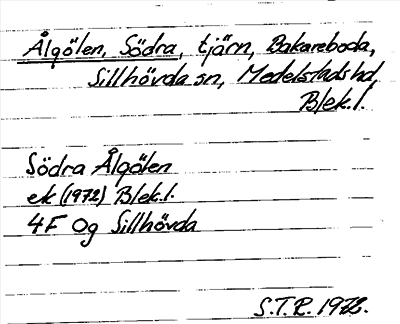 Ålgölen, Södra, tjärn, Bakareboda,
Sillhövda sn, Medelstads hd
Blek.l.
Södra Ålgölen
ek (1972) Blek.l.
4F 0g Sillhövda
S.T.R. 1972.